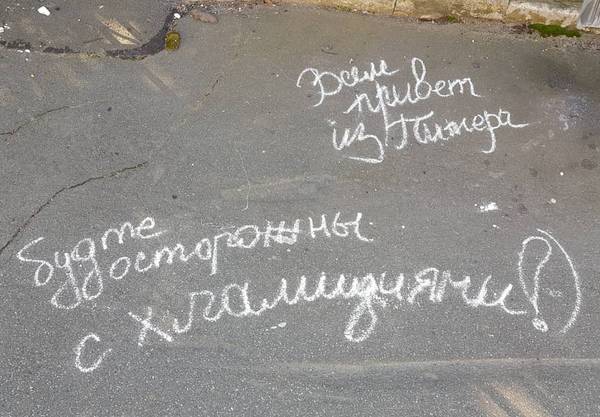 Всем
привет
из Питера
будте
досторожны
с хламидиями!)